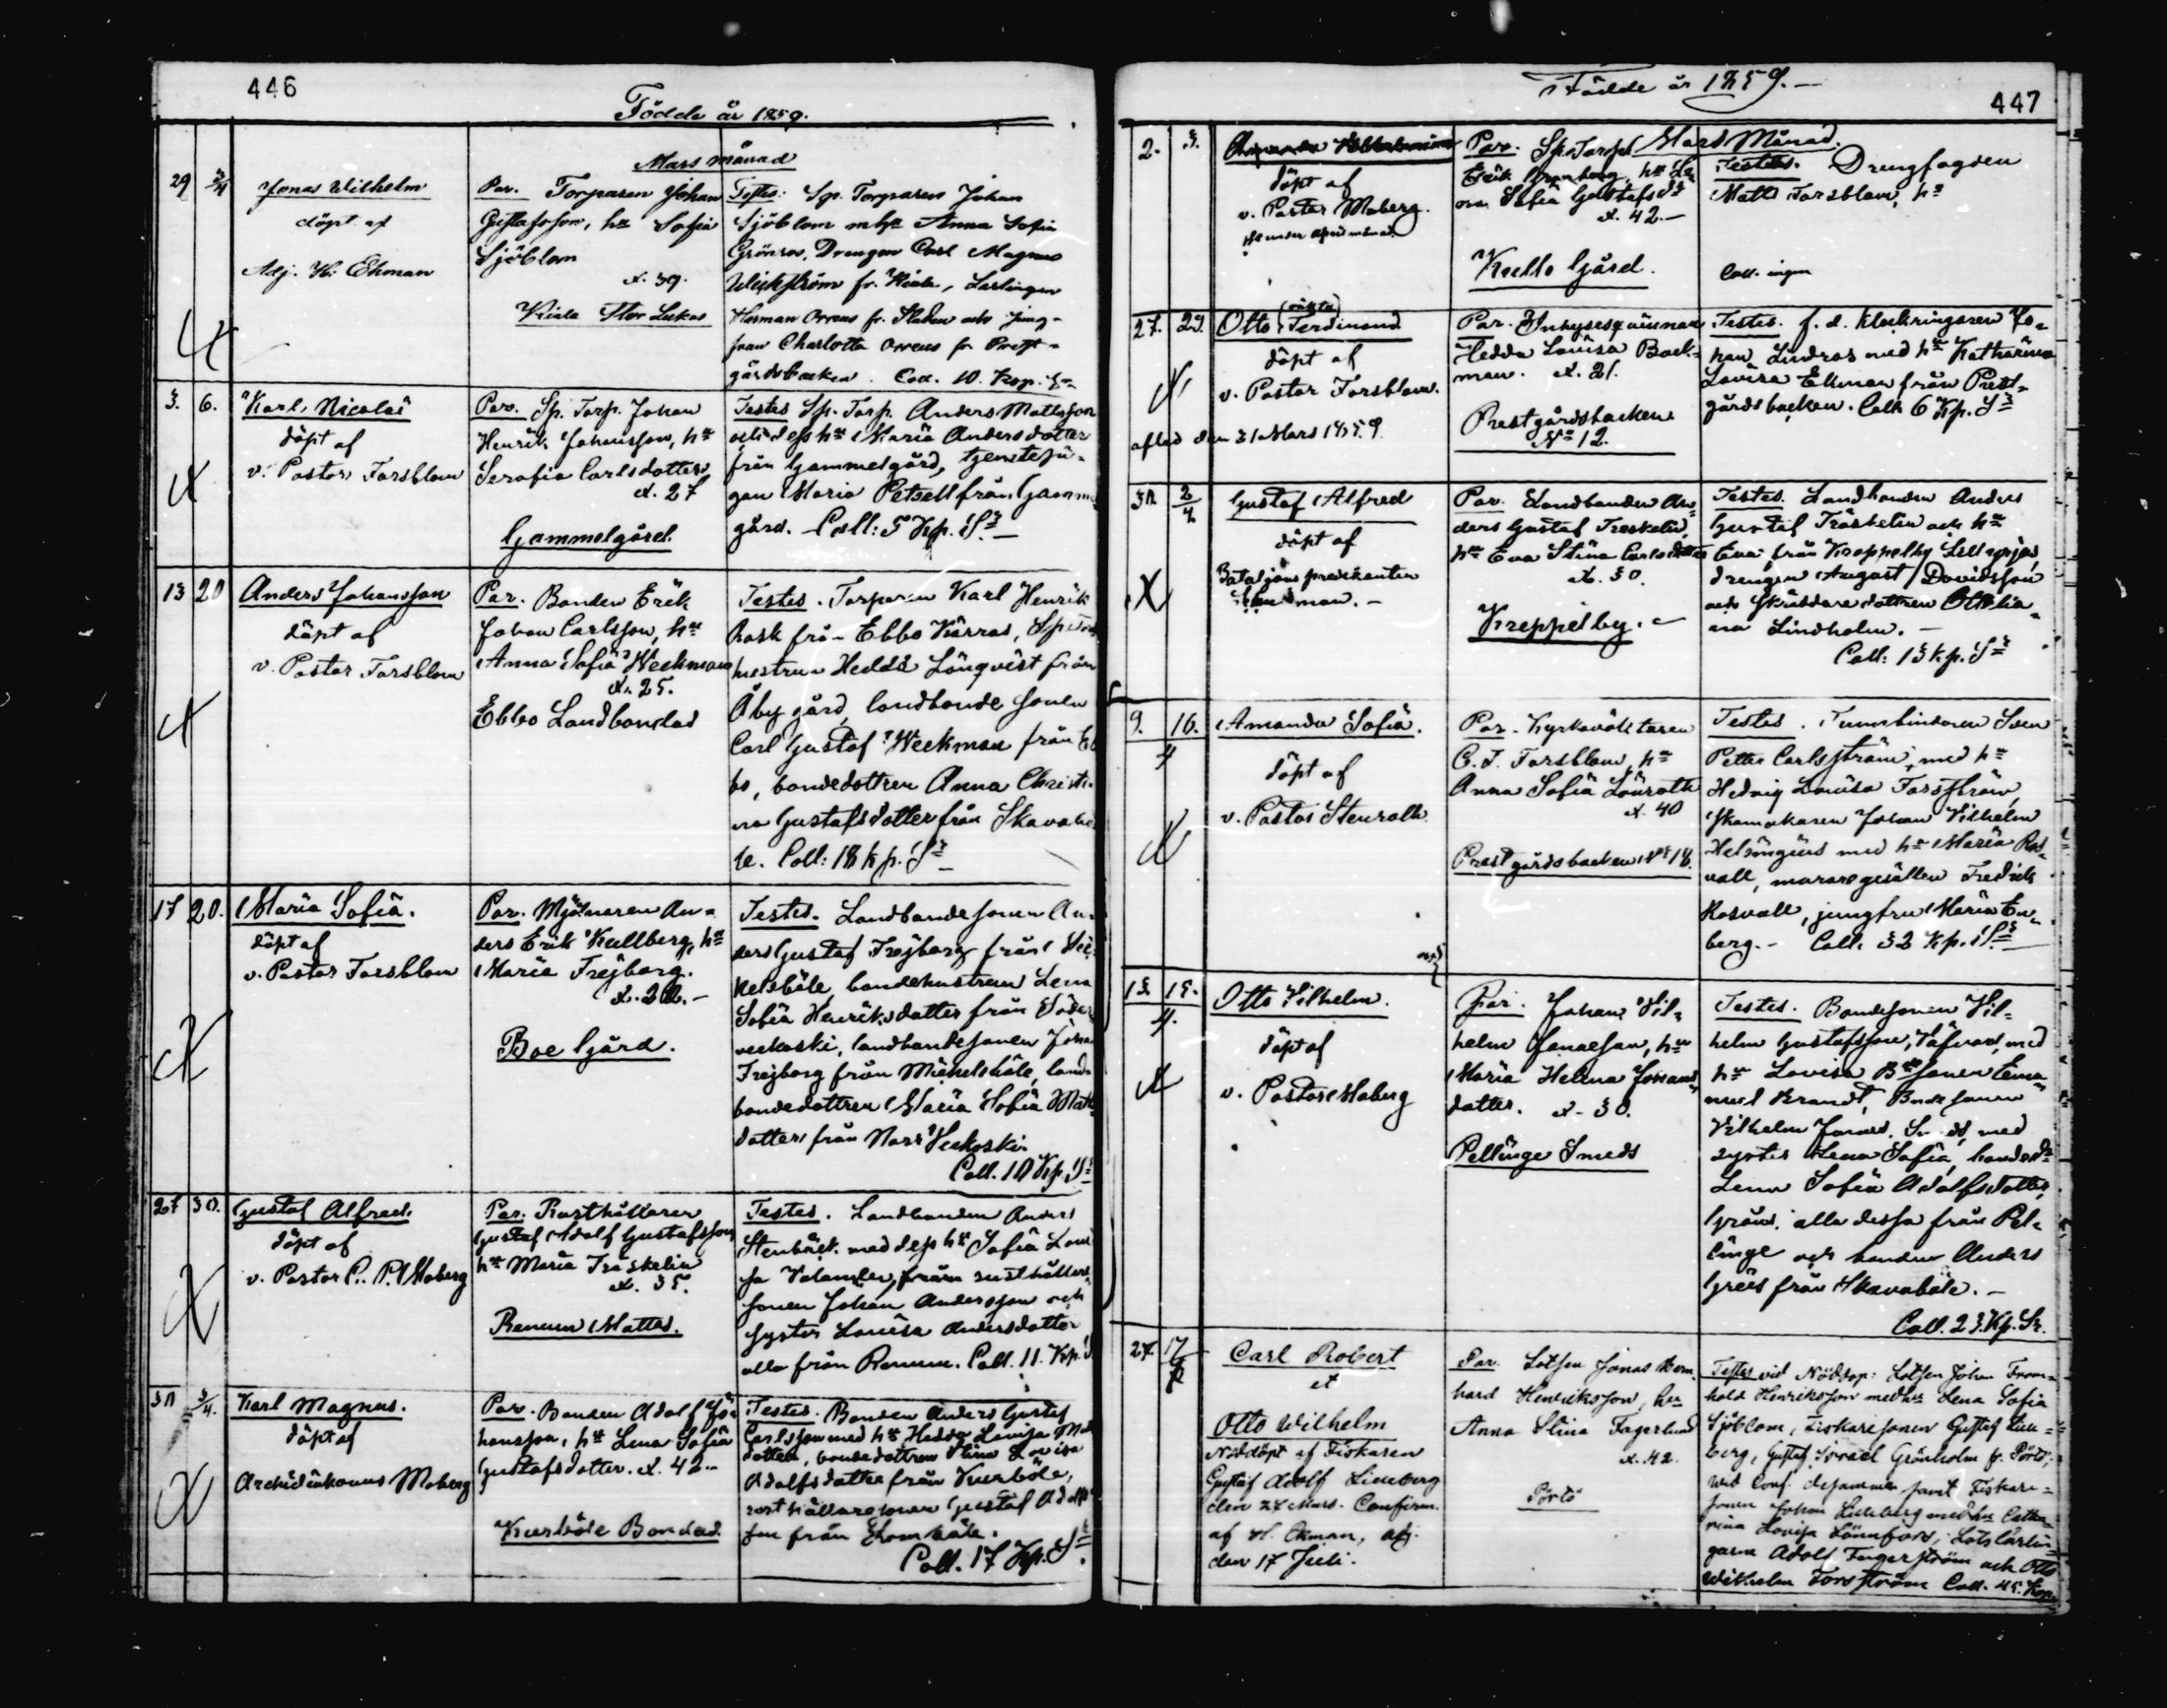 446
Födde år 1859.
Mars månad
29 3/4
Jonas Wilhelm
döpt af
Adj. K. Ekman
Par. Torparen Johan
Gustafsson, hu Sofia
Sjöblom
æ. 39.
Kiala Stor Lukas
Testes: Sp. Torparen Johan
Sjöblom m hu Anna Sofia
Grönros, Drengen Carl Magnus
Wickström fr. Kiala, Lärlingen
Herman Orreus fr. Staden och Jung-
frun Charlotta Orreus fr Prest-
gårdsbacken. Coll. 10. Kop. Sr
3. 6.
Karl Nicolai
döpt af
v. Pastor Forsblom
Par. Sp. Torp. Johan
Henrik Johansson, hu
Serafia Carlsdotter
æ. 27
Gammelgård.
Testes Sp. Torp. Anders Mattsson
och dess hu Maria Andersdotter
från Gammelgård, tjenstepi-
gan Maria Petsell från Gamm
gård. Coll: 5 Kp. Sr
13 20
Anders Johansson
döpt af
v. Pastor Forsblom
Par. Bonden Erik
Johan Carlsson, hu
Anna Sofia Weckman
æ. 25.
Ebbo Landbondas
Testes. Torparen Karl Henrik
Rask från Ebbo Kärras, Sp Torp
hustrun Hedda Lönqvist från
Åby gård, landbonde sonen
Carl Gustaf Weckman från Eb
bo, bondedottren Anna Christi-
na Gustafsdotter från Skavabö
le. Coll: 18 kp. Sr
17 20.
Maria Sofia.
döpt af
v. Pastor Forsblom
Par. Mjölnaren An-
ders Erik Kullberg, hu
Maria Frejborg.
æ. 22.
Boe Gård.
Testes. Landbondesonen An-
ders Gustaf Frejborg från
bondehustrun Lena
Sofia Henriksdotter från Söder
veckoski, landbondesonen Johan
Frejborg från Mickelsböle, land-
bondedottren Maria Sofia Matts
dotter från Norr Veckoski
Coll. 10 Kp. Sr
27 30.
Gustaf Alfred.
döpt af
v. Pastor C. P. Moberg
Par. Rusthållaren
Gustaf Adolf Gustafsson
hu Maria Träskelin
æ. 35.
Renum Mattas.
Testes. Landbonden Anders
Stenbäck med dess hu Sofia Lovi
sa Valander, från rusthållare
sonen Johan Andersson och
syster Lovisa Andersdotter
alla från Renum. Coll. 11. Kp. S
30 3/4.
Karl Magnus.
döpt af
Archidiakonus Moberg
Par. Bonden Adolf Jo-
hansson, hu Lena Sofia
Gustafsdotter. æ. 42.
Kurböle Bondas.
Testes. Bonden Anders Gustaf
Carlsson med hu Hedda Lovisa Mats
dotter, bondedottren Stina Lovisa
Adolfsdotter från Kurböle,
rusthållaresonen Gustaf Adolfs
son från
Coll. 17 Kp. Sr
Födde år 1859.
447
Mars Månad.
2. 3.
döpt af
v. Pastor Moberg.
Par. Sp Torp
Erik Grönberg, hu Le
na Sofia Gustafsdr
æ. 42.
Kullo Gård.
Testes. Drengfogden
Matts Forsblom, hu
Coll. ingen
27. 29.
(oäkta)
Otto Ferdinand
döpt af
v. Pastor Forsblom.
aflad den 31 Mars 1859.
Par. Inhysesqvinnan
Hedda Lovisa Back-
man. æ. 21.
Prestgårdsbacken
No 12.
Testes. f. d. klockringaren Jo-
han Lindros med hu Katharina
Lovisa Ekman från Prest-
gårdsbacken. Coll. 6 Kp. Sr
30. 2/4
Gustaf Alfred
döpt af
Bataljons predikanten
Par. Landbonden An-
ders Gustaf Treskelin,
hu Eva Stina Carlsdotter
æ. 30.
Kreppelby.
Testes. Landbonden Anders
Gustaf Träskelin och hu
Eva, från Kreppelby
drengen August Davidsson
och skräddare dottren
na Lindholm.
Coll: 13 kp. Sr
9. 16. 4
Amanda Sofia.
döpt af
v. Pastor Stenroth
Par. Kyrkoväktaren
C. J. Forsblom, hu
Anna Sofia Lönroth
æ. 40
Prestgårdsbacken No 18.
Testes. Tunnbindaren Sven
Petter Carlström, med hu
Hedvig Lovisa Forsström,
Skomakaren Johan Vilhelm
Helsingius med hu Maria Ros-
vall, muraregesällen Fredrik
Rosvall, jungfru Maria En-
berg. Coll. 32 Kp. Sr
13. 15. 4.
Otto Vilhelm.
döpt af
v. Pastor Moberg
Par. Johan Vil-
helm Jonasson, hu
Maria Helena Johans
dotter. æ. 30.
Pellinge Smeds
Testes. Bondesonen Vil-
helm Gustafsson, Täfvars, med
hu Lovisa Bdesonen Ema-
nuel Brandt, Bondesonen
Vilhelm med
syster Lena Sofia, bondedr
Lena Sofia Adolfsdotter,
Gräns, alla dessa från Pel-
linge och bonden Anders
Grels från Skavaböle.
Coll. 23. Kp. Sr.
27 17/7
Carl Robert
et
Otto Wilhelm
Nöddöpt af Fiskaren
Gustaf Adolf Lindberg
den 28 Mars. Confirm.
af K. Ekman, adj.
den 17 Juli.
Par. Lotsen Jonas Bern
hard Henriksson, hu
Anna Stina Fagerlund
æ. 42.
Pörtö
Testes vid Nöddop: Lotsen Johan From-
hold Henriksson med hu Lena Sofia
Sjöblom, Fiskaresonen Gustaf Lind-
berg, Gustaf Israel Grönholm fr. Pörtö;
wid Conf. desamma samt Fiskare-
sonen Johan Lindberg med hu Catha-
rina Lovisa Lönnfors, Lotslärlin-
garne Adolf Fagerström och Otto
Wilhelm Forsström Coll. 45. Kop.